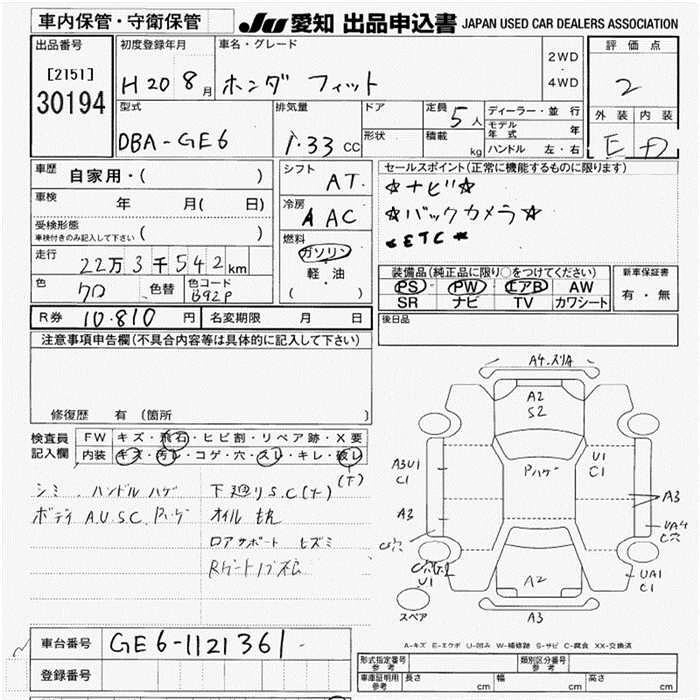 車内保管・守衛保管
JU 愛知 出品申込書 JAPAN USED CAR DEALERS ASSOCIATION
出品番号
[2151]
30194
初度登録年月
H20 8月
車名・グレード
ホンダ フィット
2WD
・
4WD
評価点
2
外装 内装
E D
型式
DBA-GE6
排気量
1.33 CC
ドア
形状
定員 5人
積載 kg
ディーラー・並行
モデル年式 年
ハンドル 左・右
車歴 自家用・( )
車検 年 月( 日)
受検形態
車検付きのみ記入して下さい ( )
走行 22万3千542km
色 クロ 色替 色コード B92P
シフト AT.
冷房 AAC
燃料
ガソリン
軽・油
( )
セールスポイント(正常に機能するものに限ります)
☆ナビ☆
☆バックカメラ☆
ETC
装備品(純正品に限り○をつけてください)
PS PW エアB AW
SR ナビ TV カワシート
新車保証書
有・無
R券 10.810円 名変期限 月 日
後日品
注意事項申告欄(不具合内容等は具体的に記入して下さい)
修復歴 有(箇所 )
検査員記入欄
FW キズ・飛石・ヒビ割・リペア跡・X要
内装 キズ・汚レ・コゲ・穴・スレ・キレ・破レ
(T)
シミ . ハンドルハゲ 下廻りS.C(大)
ボディ A.U.S.C. Pハゲ オイルもれ
ロアサポート ヒズミ
A4.ズリA
A2
S2
A3U1
C1
Pハゲ
U1
C1
A3
A3
UA4
C穴
C穴
U1
A2
UA1
C1
A3
スペア
A-キズ E-エクボ U-凹み W-補修跡 S-サビ C-腐食 XX-交換済
車台番号 GE6-1121361
登録番号
形式指定番号 参考
類別区分番号 参考
車庫証明用 参考 長さ cm 幅 cm 高さ cm